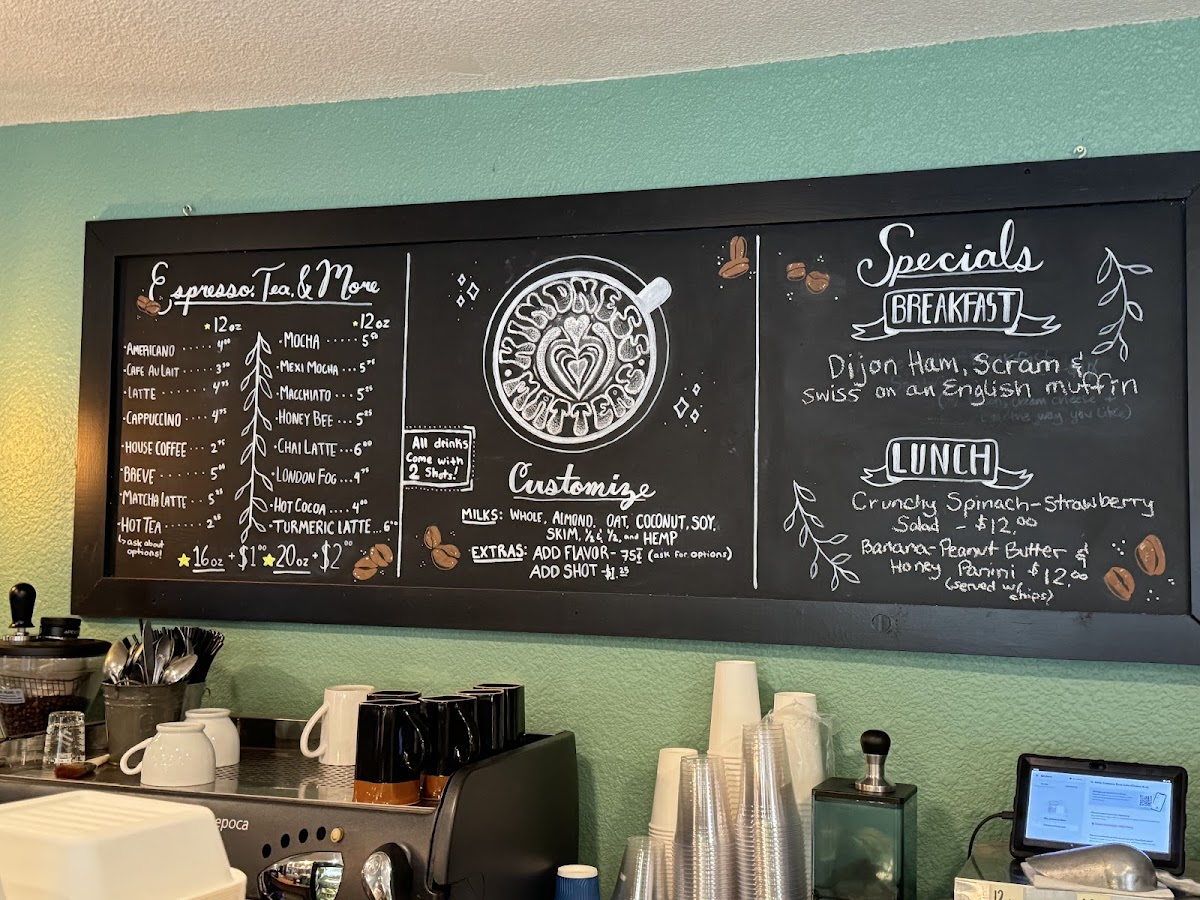 Espresso, Tea, & More
12oz
·AMERICANO ···· 4⁰⁰
·CAFE AU LAIT ··· 3⁵⁰
·LATTE ···· 4⁷⁵
·CAPPUCCINO ···· 4⁷⁵
·HOUSE COFFEE ··· 2⁷⁵
·BREVE ····· 5⁰⁰
·MATCHA LATTE ·· 5²⁵
·HOT TEA ······ 2⁷⁵
ask about
options!
12oz
·MOCHA ···· 5⁵⁰
·MEXI MOCHA ··· 5⁷⁵
·MACCHIATO ··· 5²⁵
·HONEY BEE ··· 5²⁵
·CHAI LATTE ··· 6⁰⁰
·LONDON FOG ... 4⁷⁵
·HOT COCOA .... 4⁰⁰
·TURMERIC LATTE... 6⁰⁰
16oz + $1⁰⁰ 20oz + $2⁰⁰
All drinks
Come with
2 shots!
·KINDNESS·
MATTERS
Customize
MILKS: WHOLE, ALMOND, OAT, COCONUT, SOY,
SKIM, ½ & ½, and HEMP
EXTRAS: ADD FLAVOR - 75¢ (ask for options)
ADD SHOT - $1.25
Specials
BREAKFAST
Dijon Ham, Scram &
swiss on an English muffin
LUNCH
Crunchy Spinach-Strawberry
Salad - $12.00
Banana-Peanut Butter &
Honey Panini $12⁰⁰
(served w/
chips)
epoca
12